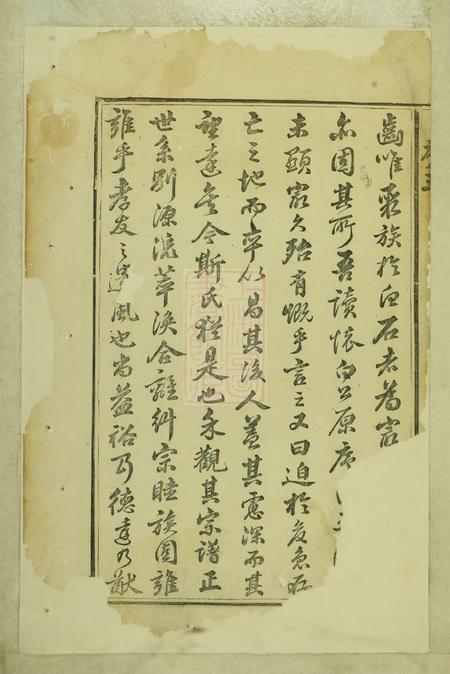 齒唯聚族於白石者為宗
亦固其所吾讀懷白公原序
未顯宗久殆有慨乎言之又曰迫於危急
亡之地而卒以昌其後人蓋其慮深而其
望遠矣今斯氏猶是也永觀其宗譜正
世系別源流萃渙合離糾宗睦族固雍
雍乎孝友之遺風也尚益裕乃德遠乃猷